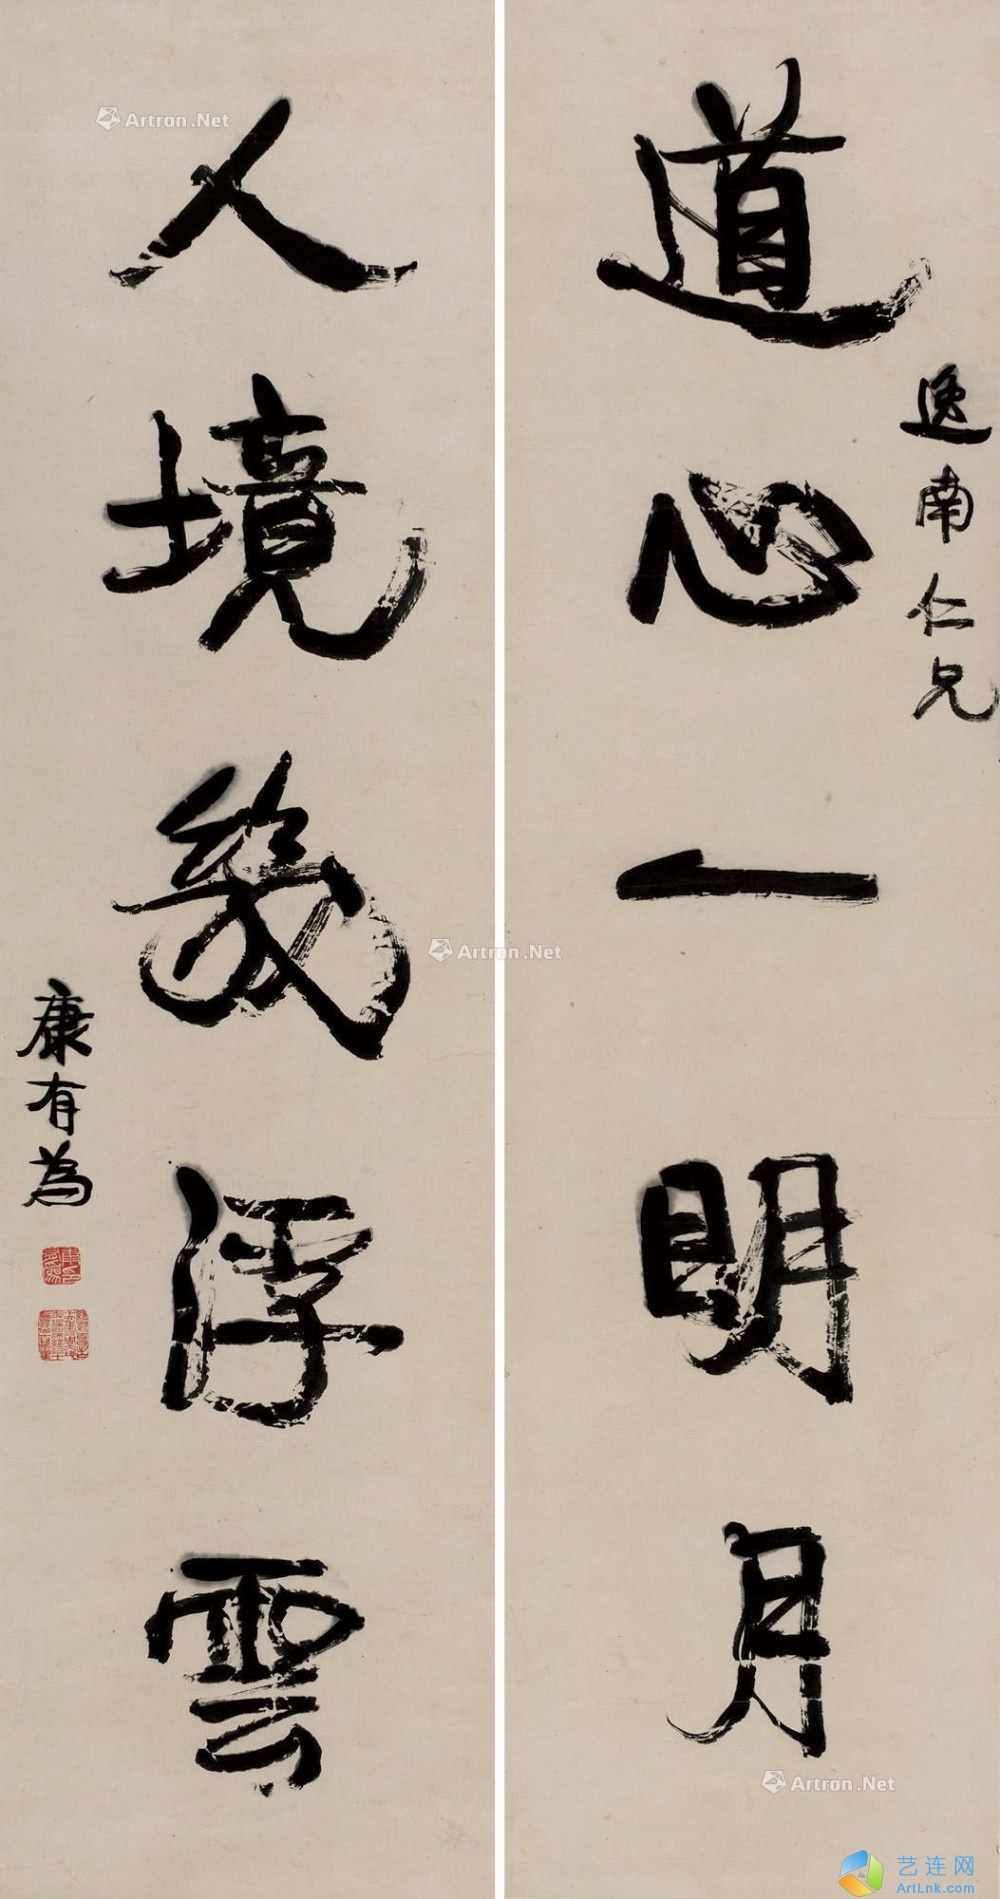 道心一明月
逸南仁兄
人境幾浮雲
康有為
Artron.Net
Artron.Net
Artron.Net
艺连网
ArtLnk.com